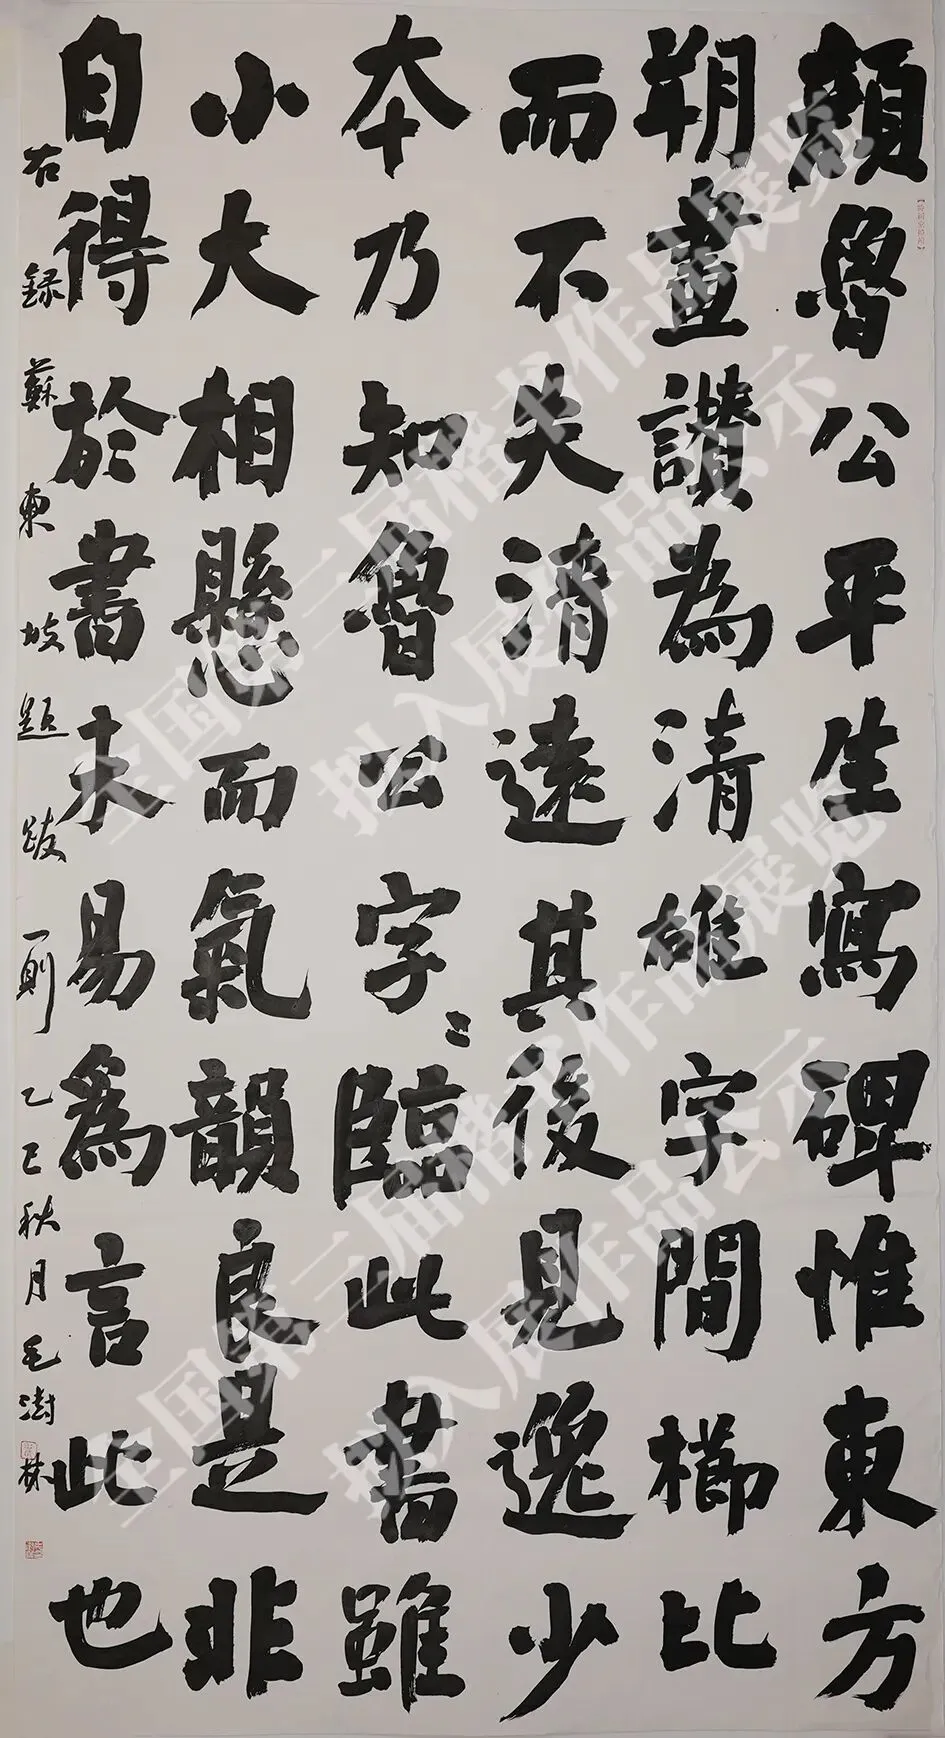 顏魯公平生寫碑惟東方
朔畫讚為清雄字間櫛比
而不失清遠其後見逸少
本乃知魯公字〻臨此書雖
小大相懸而氣韻良是非
自得於書未易為言此也
右錄蘇東坡題跋一則乙巳秋月毛澍林
全国第三届楷书作品展览
拟入展作品公示
全国第三届楷书作品展览
拟入展作品公示